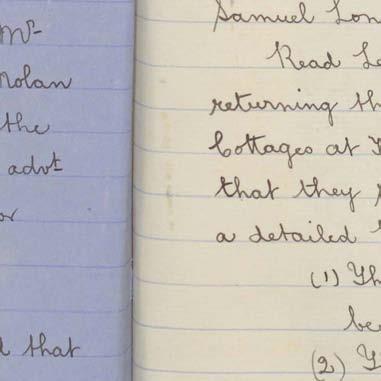 Mr
Nolan
the
advt
or
that
Samuel
Read
returning
Cottages at
that they
a detailed
(1)
be
(2)